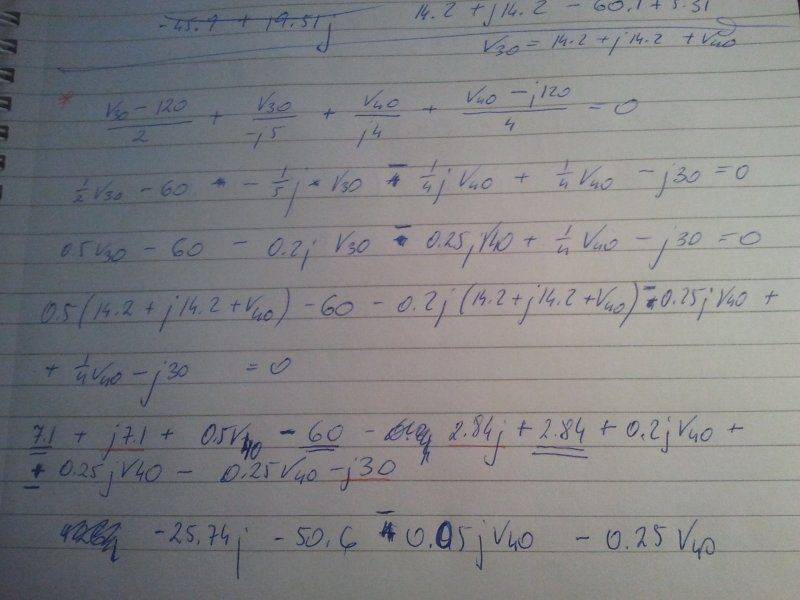 -45.9 + 19.51j
14.2 + j14.2 - 60.1 + 5.31
V30 = 14.2 + j14.2 + V40
* (V30 - 120)/2 + V30/(-j5) + V40/(j4) + (V40 - j120)/4 = 0
1/2 V30 - 60 - 1/5 j V30 - 1/4 j V40 + 1/4 V40 - j30 = 0
0.5V30 - 60 - 0.2j V30 - 0.25j V40 + 1/4 V40 - j30 = 0
0.5(14.2 + j14.2 + V40) - 60 - 0.2j (14.2 + j14.2 + V40) - 0.25j V40 +
+ 1/4 V40 - j30 = 0
7.1 + j7.1 + 0.5V40 - 60 - 2.84j + 2.84 + 0.2j V40 +
- 0.25j V40 - 0.25 V40 - j30
-25.74j - 50.6 - 0.05j V40 - 0.25 V40